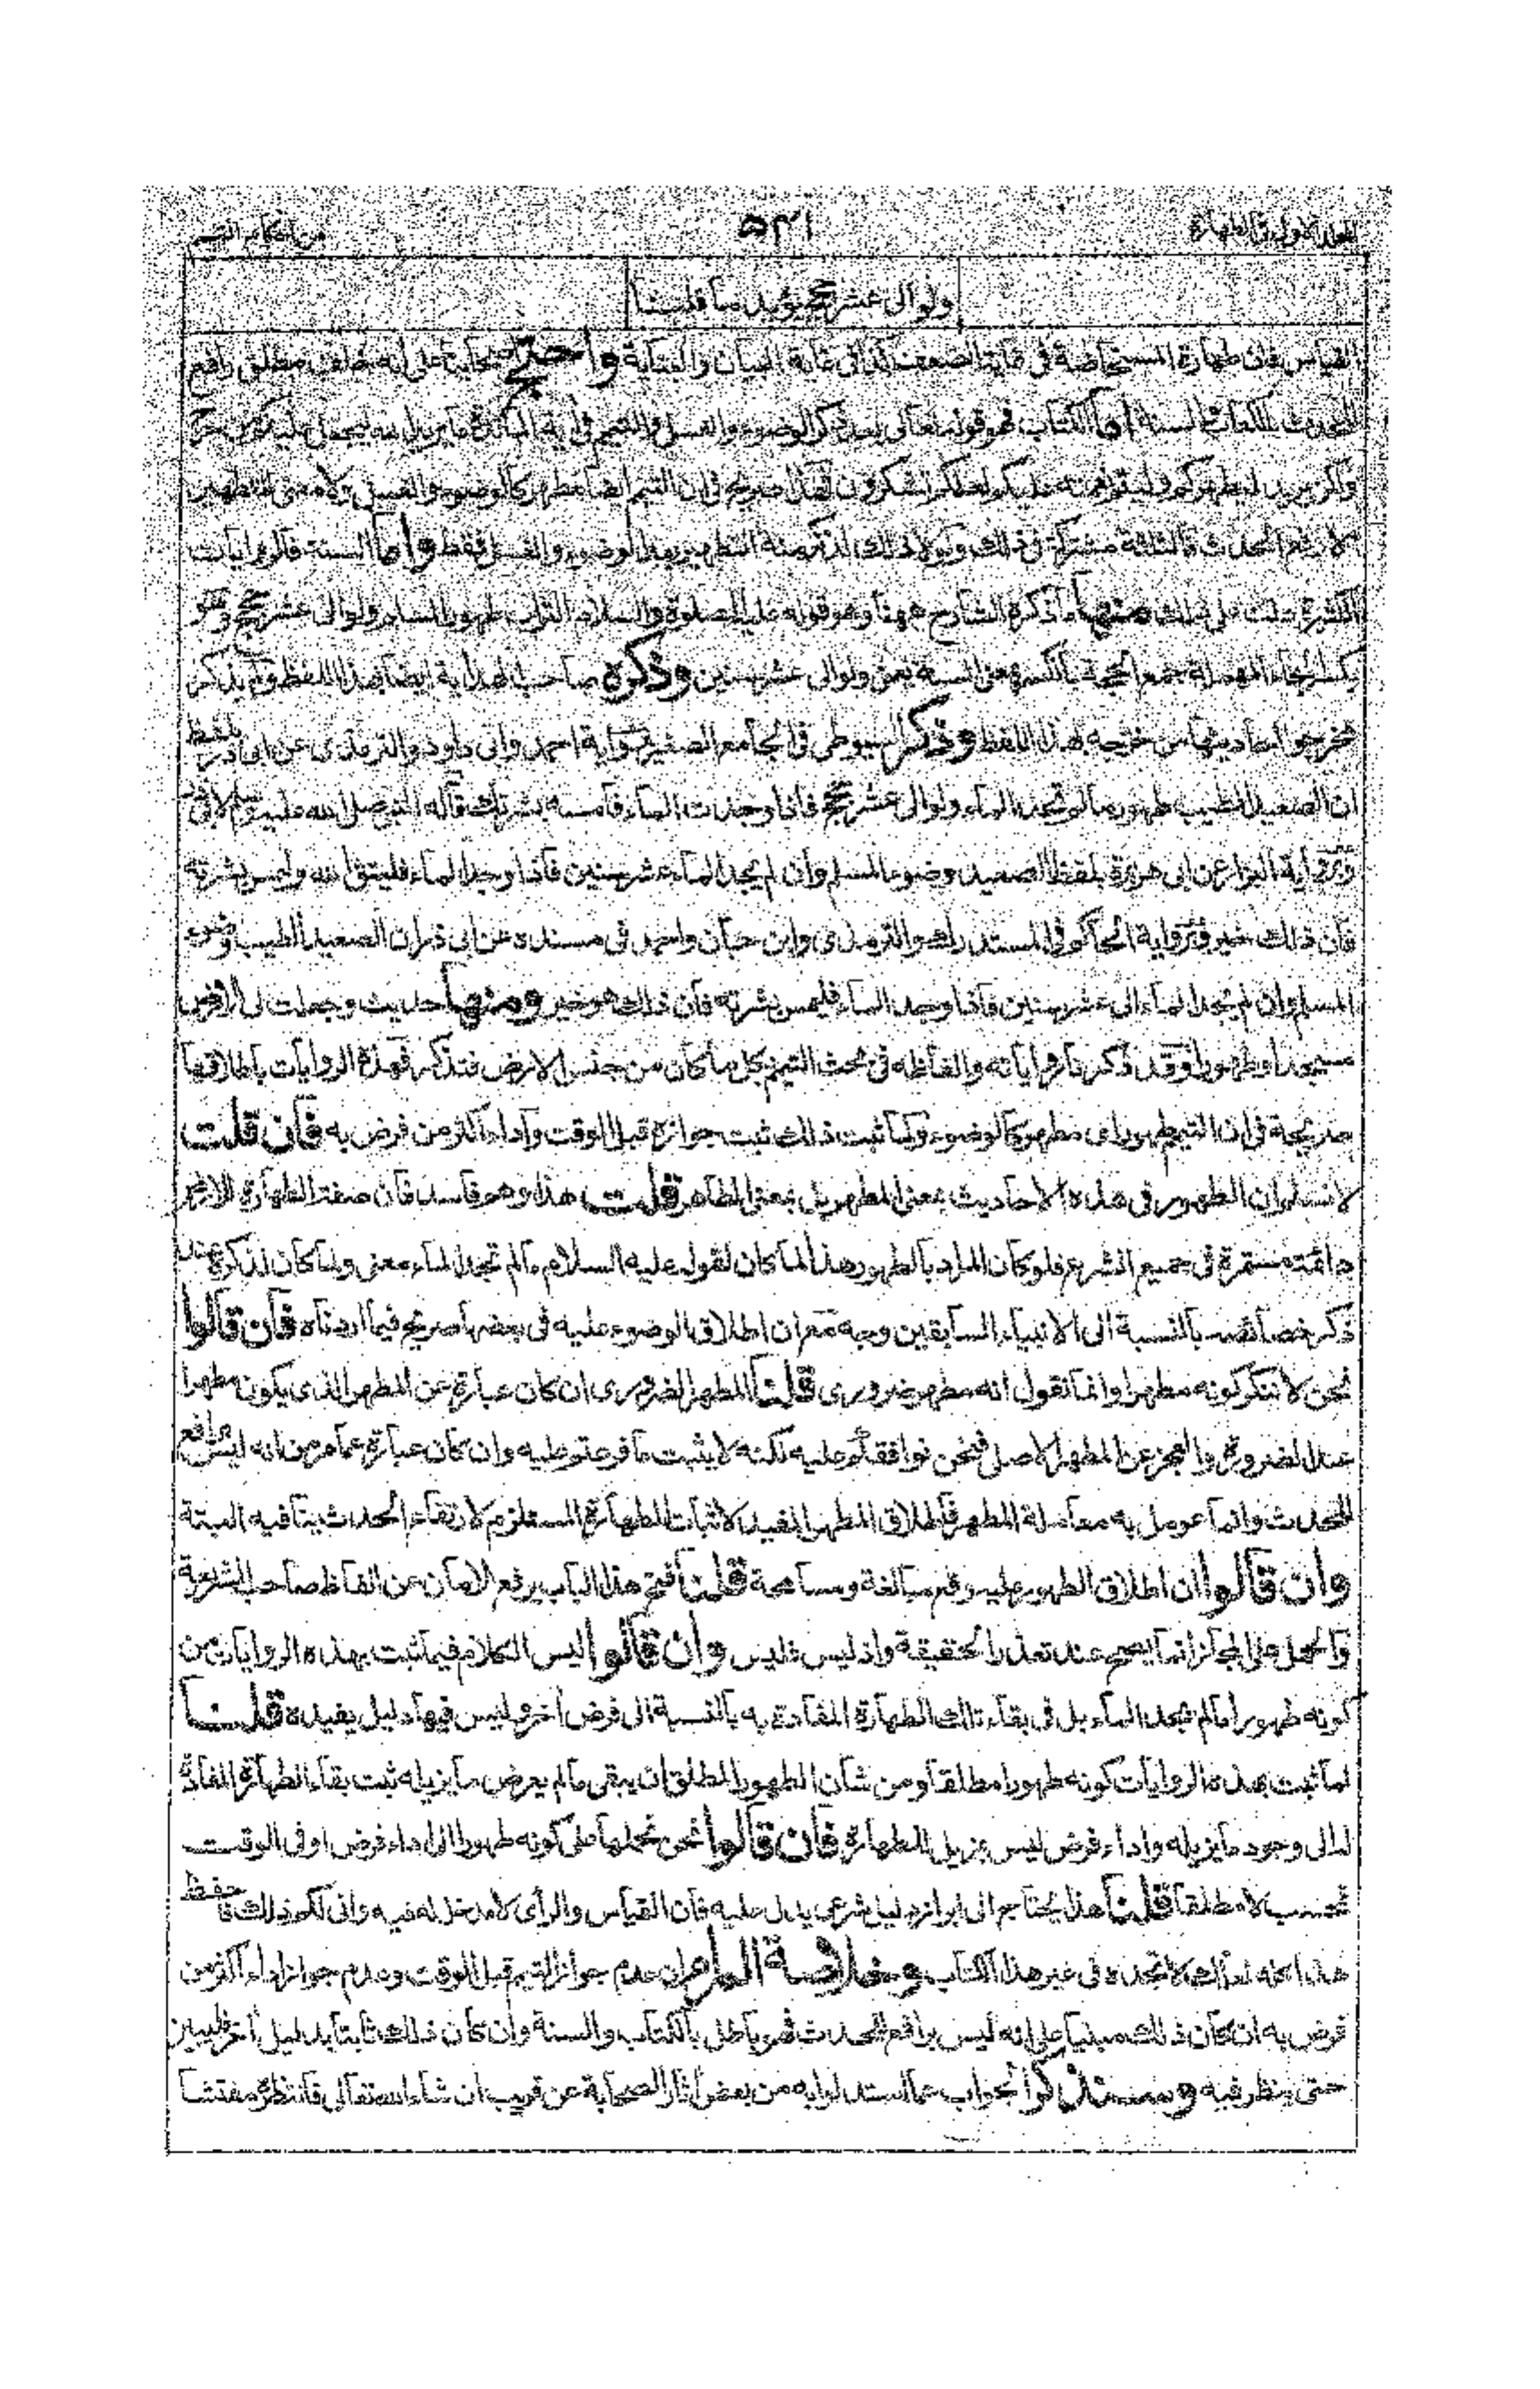 المجلد الاول من الطهارة
٥٣١
من احكام التيمم
ولو الى عشر حجج يؤيد ما قلنا
القياس فان طهارة المستحاضة في غاية الضعف كذا في غاية البيان والبناية واحتج اصحابنا على انه خلف مطلق رافع
للحدث بالكتاب والسنة اما الكتاب فهو قوله تعالى بعد ذكر الوضوء والغسل والتيمم في اية المائدة ما يريد الله ليجعل عليكم من حرج
ولكن يريد ليطهركم وليتم نعمته عليكم لعلكم تشكرون فقال صريح في ان التيمم ايضا مطهر كالوضوء والغسل ولا معنى للتطهير
الا رفع الحدث فالثلثة مشتركة في ذلك ولولا ذلك لذكر منة التطهير بعد الوضوء والغسل فقط واما السنة فالروايات
الكثيرة دلت على ذلك منها ما ذكره الشارح ههنا وهو قوله عليه الصلوة والسلام التراب طهور المسلم ولو الى عشر حجج وهو
بكسر الحاء المهملة جمع الحجة بالكسر بمعنى السنة يعني ولو الى عشر سنين وذكره صاحب الهداية ايضا بهذا اللفظ ولم يذكر
مخرجوا احاديثها من خرجه بهذا اللفظ وذكر السيوطي في الجامع الصغير برواية احمد وابي داود والترمذي عن ابي ذر بلفظ
ان الصعيد الطيب طهور ما لم تجد الماء ولو الى عشر حجج فاذا وجدت الماء فامسه بشرتك قاله النبي صلى الله عليه وسلم لابي ذر
وبرواية البزار عن ابي هريرة بلفظ الصعيد وضوء المسلم وان لم يجد الماء عشر سنين فاذا وجد الماء فليتق الله وليمس بشرته
فان ذلك خير وبرواية الحاكم في المستدرك والترمذي وابن حبان واحمد في مسنده عن ابي ذر ان الصعيد الطيب وضوء
المسلم وان لم يجد الماء الى عشر سنين فاذا وجد الماء فليمس بشرته فان ذلك هو خير ومنها حديث وجعلت لي الارض
مسجدا وطهورا وقد ذكرنا رواياته والفاظه في بحث التيمم بكل ما كان من جنس الارض فتذكر فهذه الروايات باطلاقها
صريحة في ان التيمم طهور اي مطهر كالوضوء ولما ثبت ذلك ثبت جوازه قبل الوقت واداء اكثر من فرض به فان قلت
لا نسلم ان الطهور في هذه الاحاديث بمعنى المطهر بل بمعنى الطاهر قلت هذا وهم فاسد فان صفة الطهارة للارض
دائمة مستمرة في جميع الشرع فلو كان المراد بالطهور هذا لما كان لقوله عليه السلام ما لم تجد الماء معنى ولما كان لذكره عند
ذكر خصائصه بالنسبة الى الانبياء السابقين وجه مع ان اطلاق الوضوء عليه في بعضها صريح فيما اردناه فان قالوا
نحن لا ننكر كونه مطهرا وانما نقول انه مطهر ضروري قلنا المطهر الضروري ان كان عبارة عن المطهر الذي يكون مطهرا
عند الضرورة والعجز عن المطهر الاصلي فنحن نوافقكم عليه لكنه لا يثبت ما فرعتم عليه وان كان عبارة عما مر من انه ليس برافع
للحدث وانما عومل به معاملة المطهر فاطلاق المطهر المفيد لاثبات الطهارة المستلزم لارتفاع الحدث ينافيه البتة
وان قالوا ان اطلاق الطهور عليه وقع مبالغة ومسامحة قلنا فتح هذا الباب يرفع الامان عن الفاظ صاحب الشريعة
والحمل على المجاز انما يصح عند تعذر الحقيقة واذ ليس فليس وان قالوا ليس الكلام فيما ثبت بهذه الروايات من
كونه طهورا ما لم نجد الماء بل في بقاء تلك الطهارة المفادة به بالنسبة الى فرض اخر وليس فيها دليل يفيده قلنا
لما ثبت بهذه الروايات كونه طهورا مطلقا ومن شأن الطهور المطلق ان يبقى ما لم يعرض ما يزيله ثبت بقاء الطهارة المفادة
له الى وجود ما يزيله واداء فرض ليس بمزيل للطهارة فان قالوا نحن نحملها على كونه طهورا الى اداء فرض او في الوقت
فحسب لا مطلقا قلنا هذا يحتاج الى ابراز دليل شرعي يدل عليه فان القياس والرأي لا مدخل له فيه واني لكم ذلك فاحفظ
هذا كله لعلك لا تجده في غير هذا الكتاب وخلاصة المرام ان عدم جواز التيمم قبل الوقت وعدم جواز اداء اكثر من
فرض به ان كان ذلك مبنيا على انه ليس برافع للحدث فهو باطل بالكتاب والسنة وان كان ذلك ثابتا بدليل اخر فليبين
حتى ينظر فيه وسنذكر الجواب عما استدلوا به من بعض اثار الصحابة عن قريب ان شاء الله تعالى فانتظره مفتشا